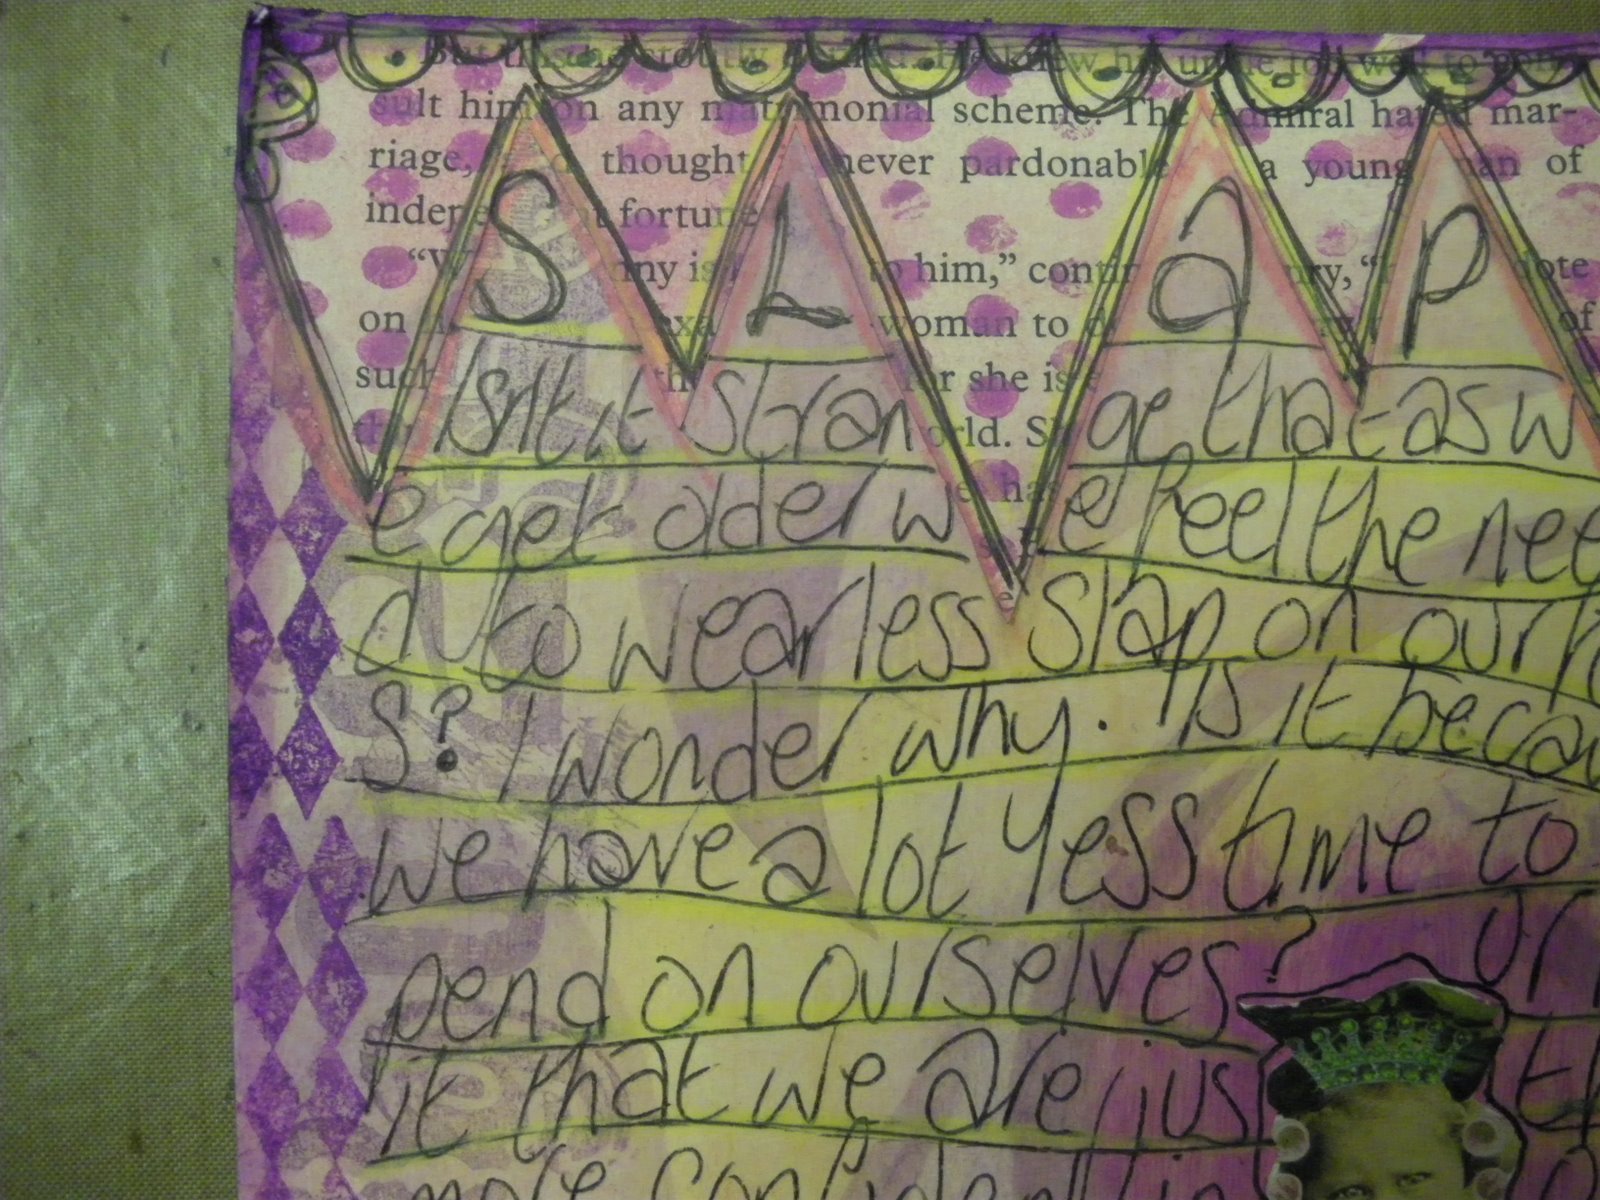 But this she stoutly denied. He knew his uncle too well to con-
sult him on any matrimonial scheme. The Admiral hated mar-
riage, and thought it never pardonable in a young man of
independent fortune
ny is to him," contin ry, " dote
on exa woman to of
such th for she is
world. S
ha
SLap
Isnt it strange that as w
e get older we feel the nee
d to wear less slap on our f
s? I wonder why. Is it becau
we have a lot less time to s
pend on ourselves? or i
it that we are jus t
more confident in